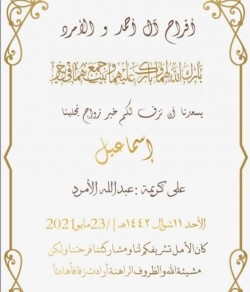 أفراح آل أحمد و الأمرد
بارك الله لهما وبارك عليهما وجمع بينهما في خير
يسعدنا أن نزف لكم خبر زواج نجلينا
إسماعيل
على كريمة : عبدالله الأمرد
الأحد ١١ شوال ١٤٤٢هـ // 23مايو 2021
كان الأمل تشريفكم لنا ومشاركتنا فرحتنا ولكن
مشيئة الله والظروف الراهنة أرادت زفافاً هادئاً